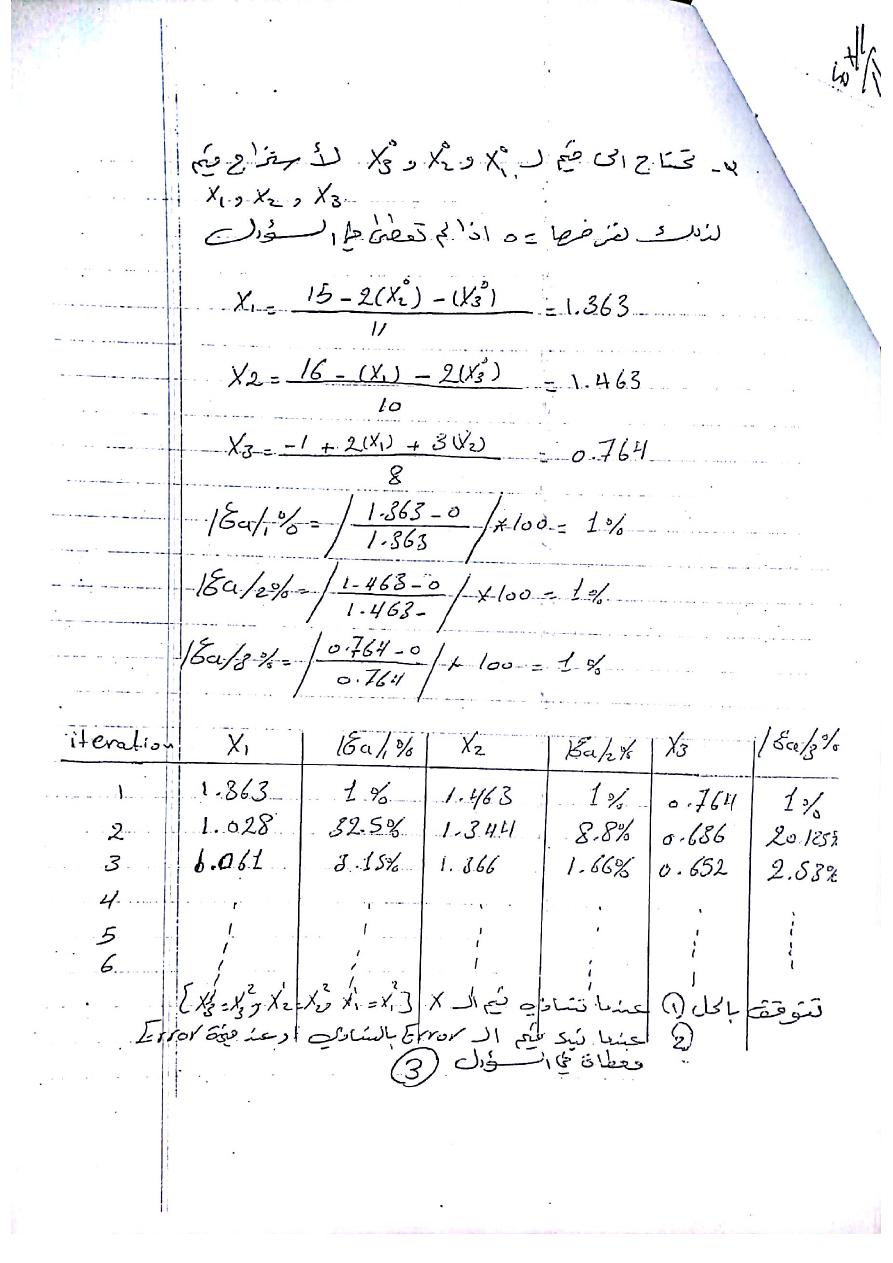 ٣- تحتاج الى قيم لـ X₁° و X₂° و X₃° لأستخراج قيم
X₁ و X₂ و X₃
لذلك نفترضها = 0 اذا لم تعطى في السؤال
X₁ = 15 - 2(X₂°) - (X₃°) / 11 = 1.363
X2 = 16 - (X₁) - 2(X₃°) / 10 = 1.463
X3 = -1 + 2(X₁) + 3(X₂) / 8 = 0.764
|Ea|₁% = |1.363 - 0 / 1.363| * 100 = 1%
|Ea|2% = |1.463 - 0 / 1.463| * 100 = 1%
|Ea|3% = |0.764 - 0 / 0.764| * 100 = 1%
iteration X₁ |Ea|₁% X2 |Ea|2% X3 |Ea|3%
1 1.363 1% 1.463 1% 0.764 1%
2 1.028 32.5% 1.344 8.8% 0.636 20.125%
3 1.061 3.15% 1.366 1.66% 0.652 2.53%
4
5
6
تتوقف بالحل (1) عندما تتساوى قيم الـ X [X₁¹ = X₁² و X₂¹ = X₂² و X₃¹ = X₃²]
(2) عندما قيم الـ Error بالتساوي او عند قيمة Error
معطاة في السؤال
3